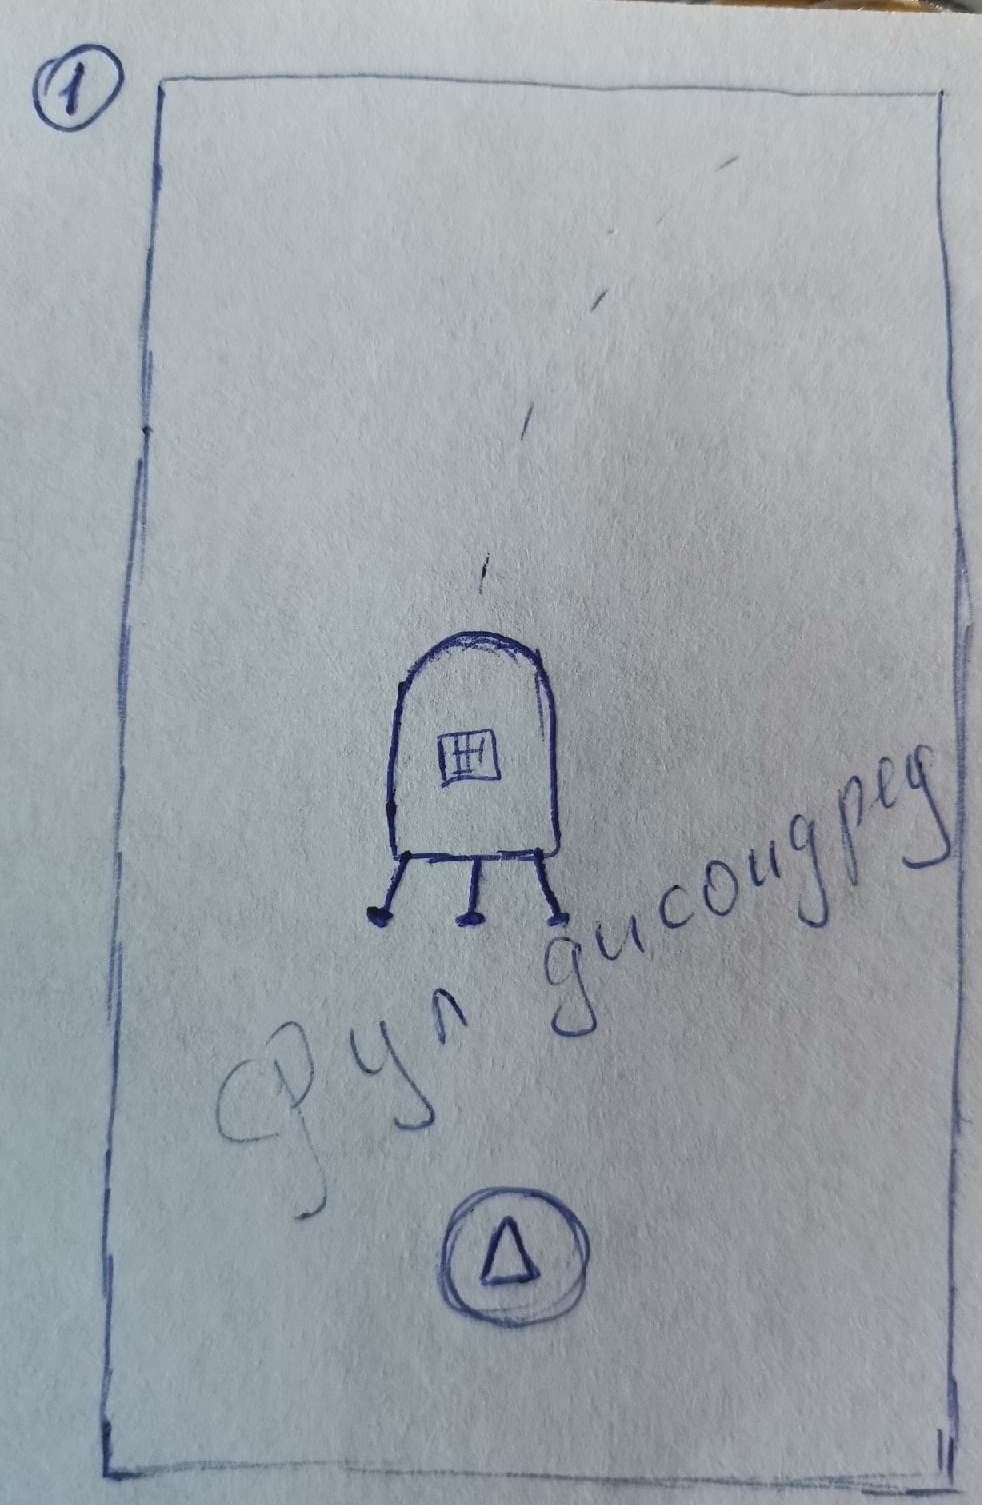 1
фул дисоидред